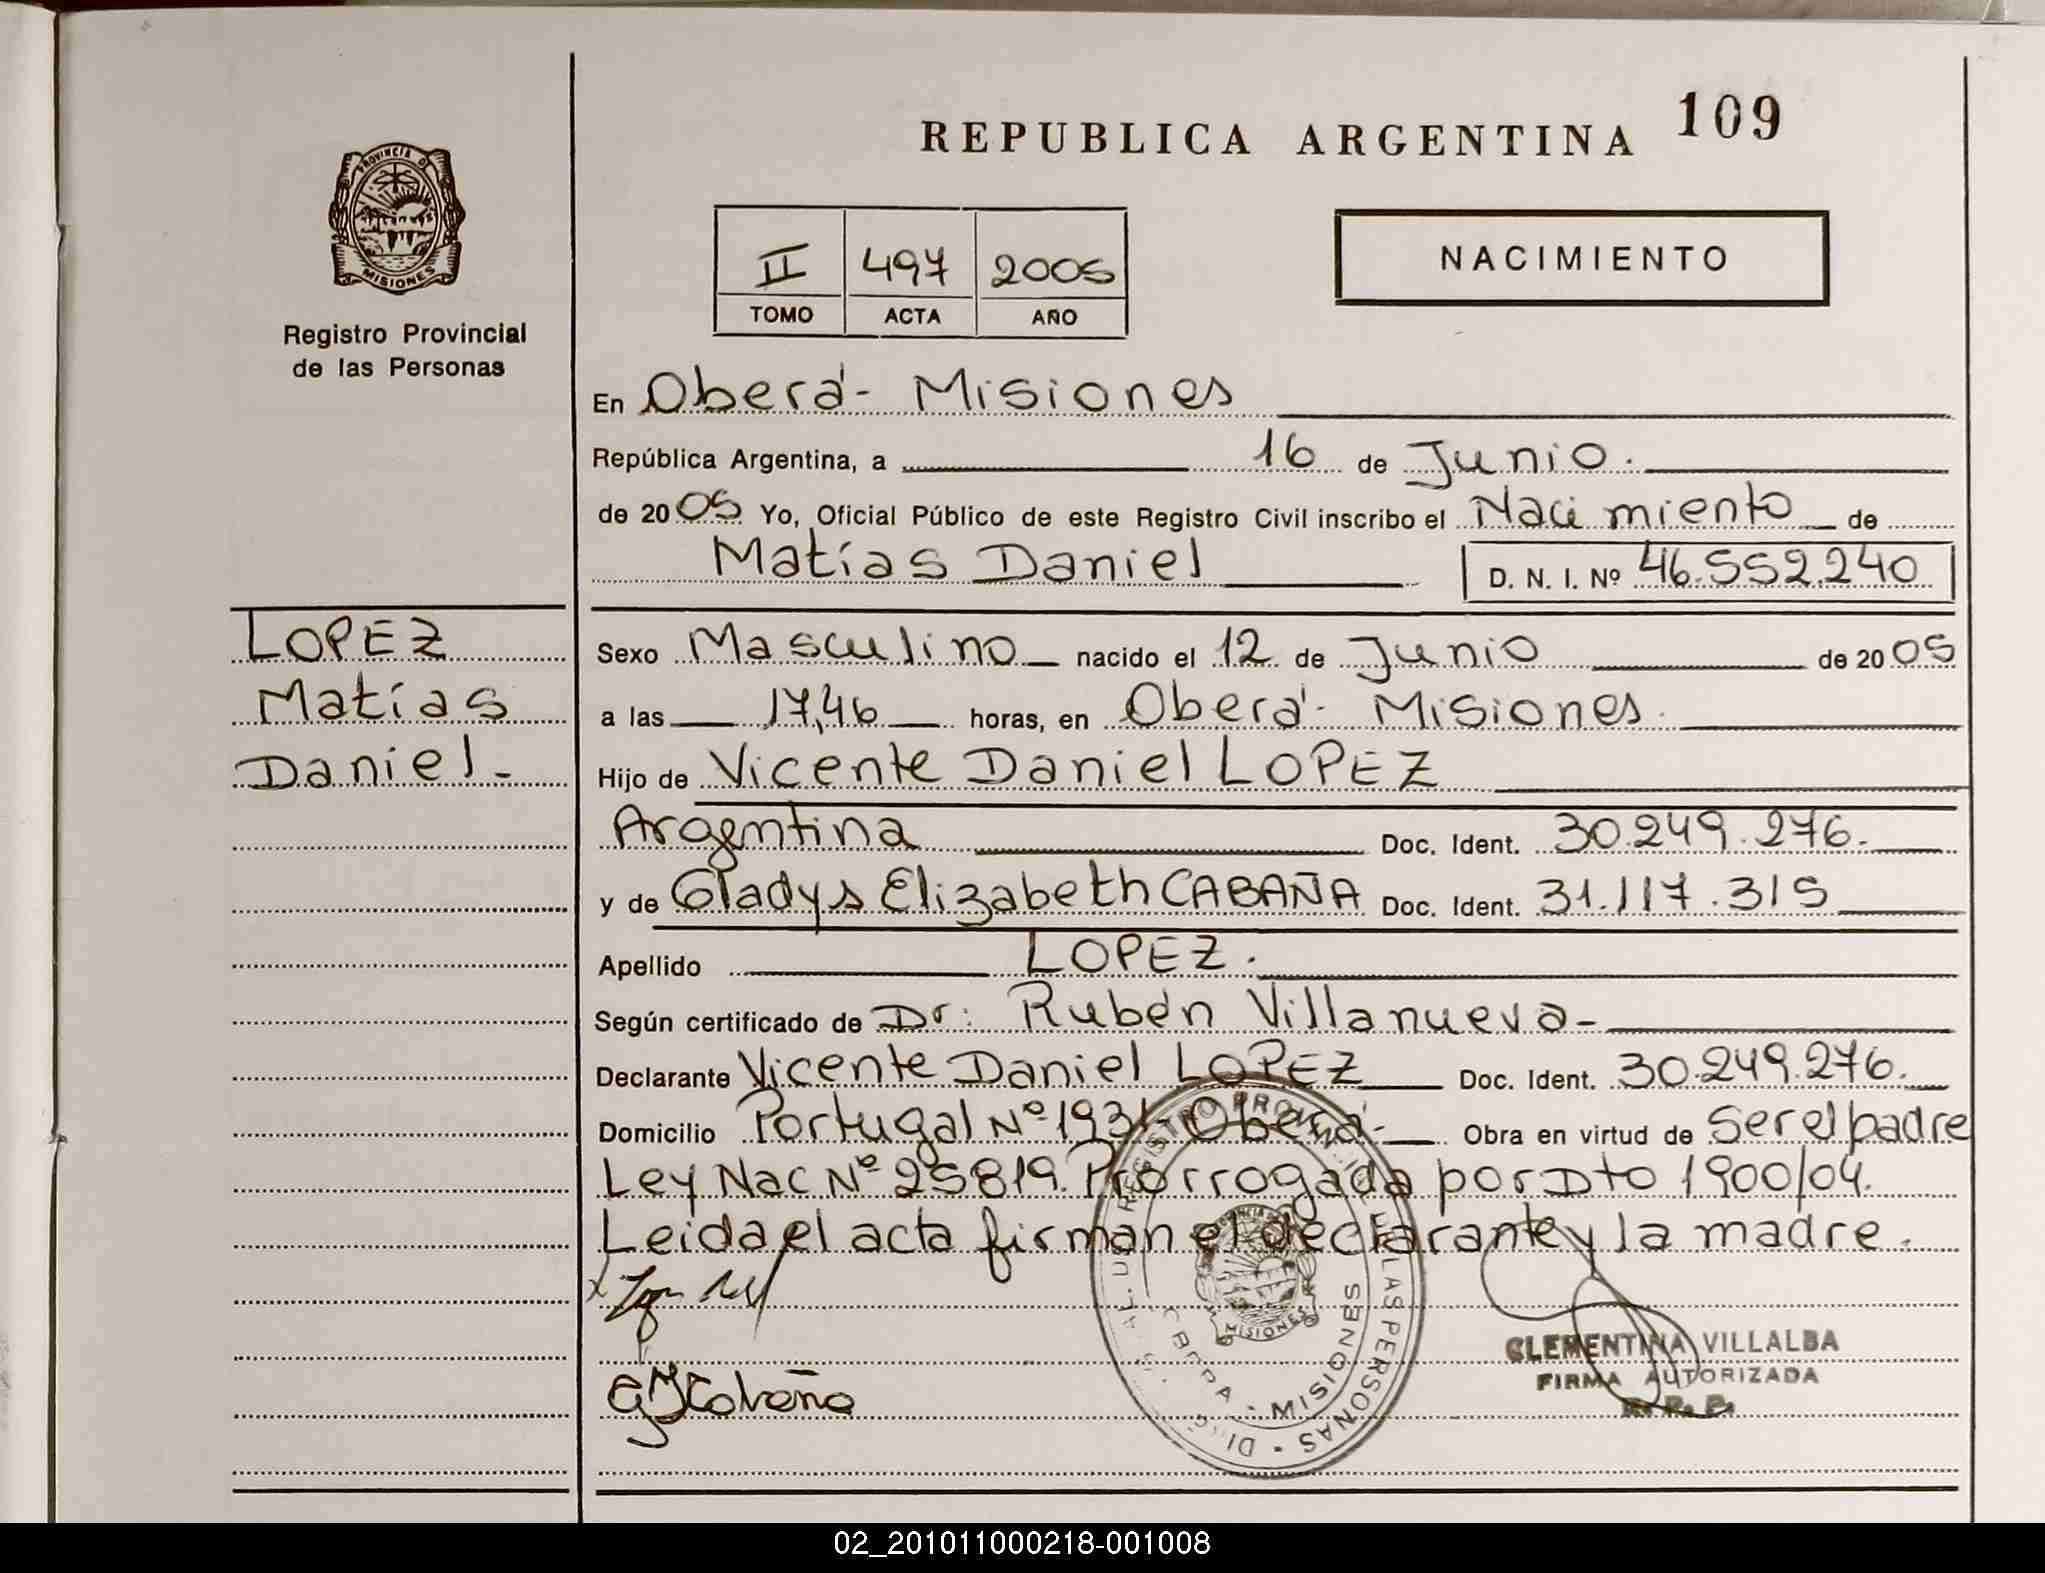 REPUBLICA ARGENTINA 109
PROVINCIA DE
MISIONES
Registro Provincial
de las Personas
NACIMIENTO
II 497 2005
TOMO ACTA AÑO
En Oberá - Misiones
República Argentina, a 16 de Junio.
de 2005 Yo, Oficial Público de este Registro Civil inscribo el Nacimiento de
Matías Daniel D. N. I. Nº 46.552.240
LOPEZ
Matías
Daniel -
Sexo Masculino nacido el 12 de Junio de 2005
a las 17,46 horas, en Oberá - Misiones.
Hijo de Vicente Daniel LOPEZ
Argentina Doc. Ident. 30.249.276.
y de Gladys Elizabeth CABAÑA Doc. Ident. 31.117.315
Apellido LOPEZ.
Según certificado de Dr: Rubén Villanueva -
Declarante Vicente Daniel LOPEZ Doc. Ident. 30.249.276.
Domicilio Portugal Nº Oberá - Obra en virtud de Ser el padre
Ley Nac Nº 25819. Prorrogada por Dto 1900/04.
Leida el acta firman el declarante y la madre.
REGISTRO PROVINCIAL DE LAS PERSONAS
MISIONES
MISIONES
CLEMENTINA VILLALBA
FIRMA AUTORIZADA
R. P. P.
02_201011000218-001008